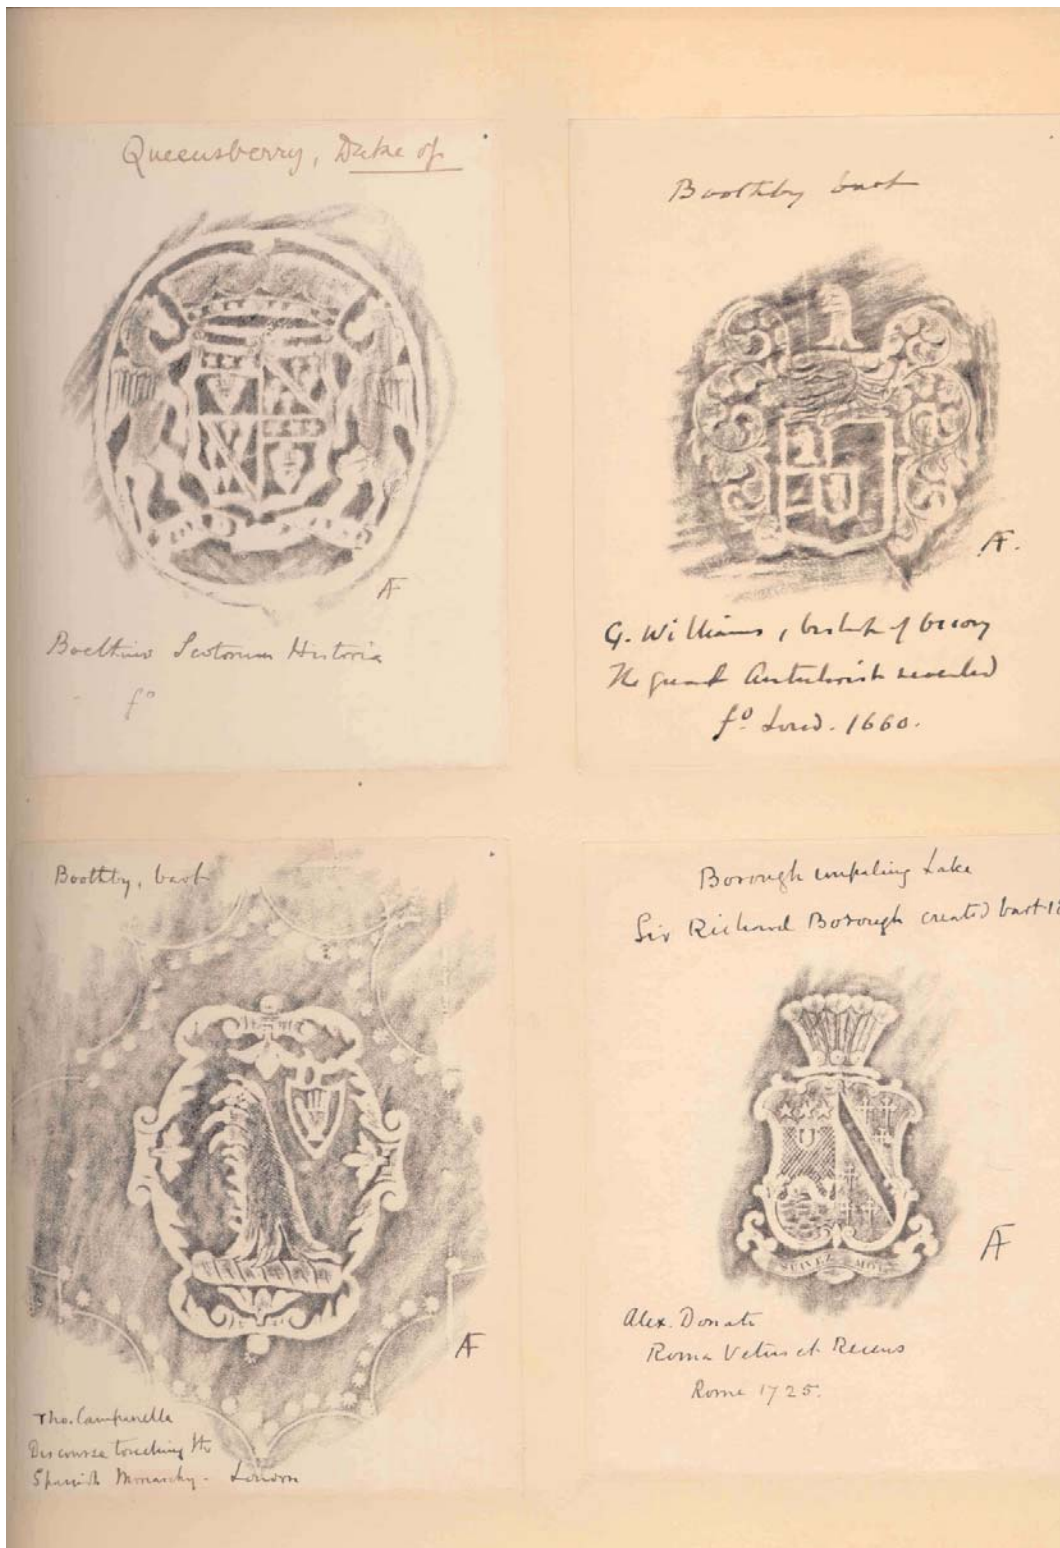 Queensberry, Duke of
AF
Boethius Scotorum Historia
fo
Boothby bart
AF.
G. Williams, bishop of Ossory
The great Antichrist revealed
fo. Lond. 1660.
Boothby, bart
AF
Tho. Campanella
Discourse touching the
Spanish Monarchy - London
Borough impaling Lake
Sir Richard Borough created bart
SUIVEZ MOY
AF
Alex. Donati
Roma Vetus et Recens
Rome 1725.